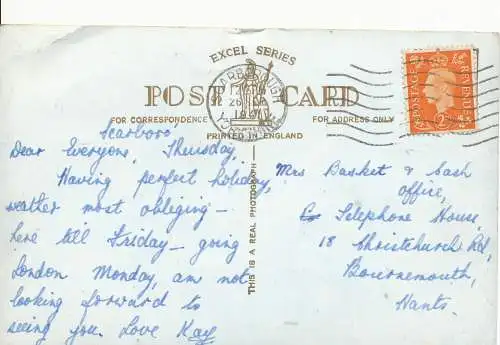 EXCEL SERIES
POST CARD
FOR CORRESPONDENCE
FOR ADDRESS ONLY
PRINTED IN ENGLAND
THIS IS A REAL PHOTOGRAPH
SCARBOROUGH
POSTAGE
REVENUE
Scarboro
Dear Everyone, Thursday,
Having perfect holiday,
weather most obliging -
here till Friday - going
London Monday, am not
looking forward to
seeing you. Love Kay
Mrs Basket & Cash
office,
Telephone House,
18 Christchurch Rd,
Bournemouth,
Hants.